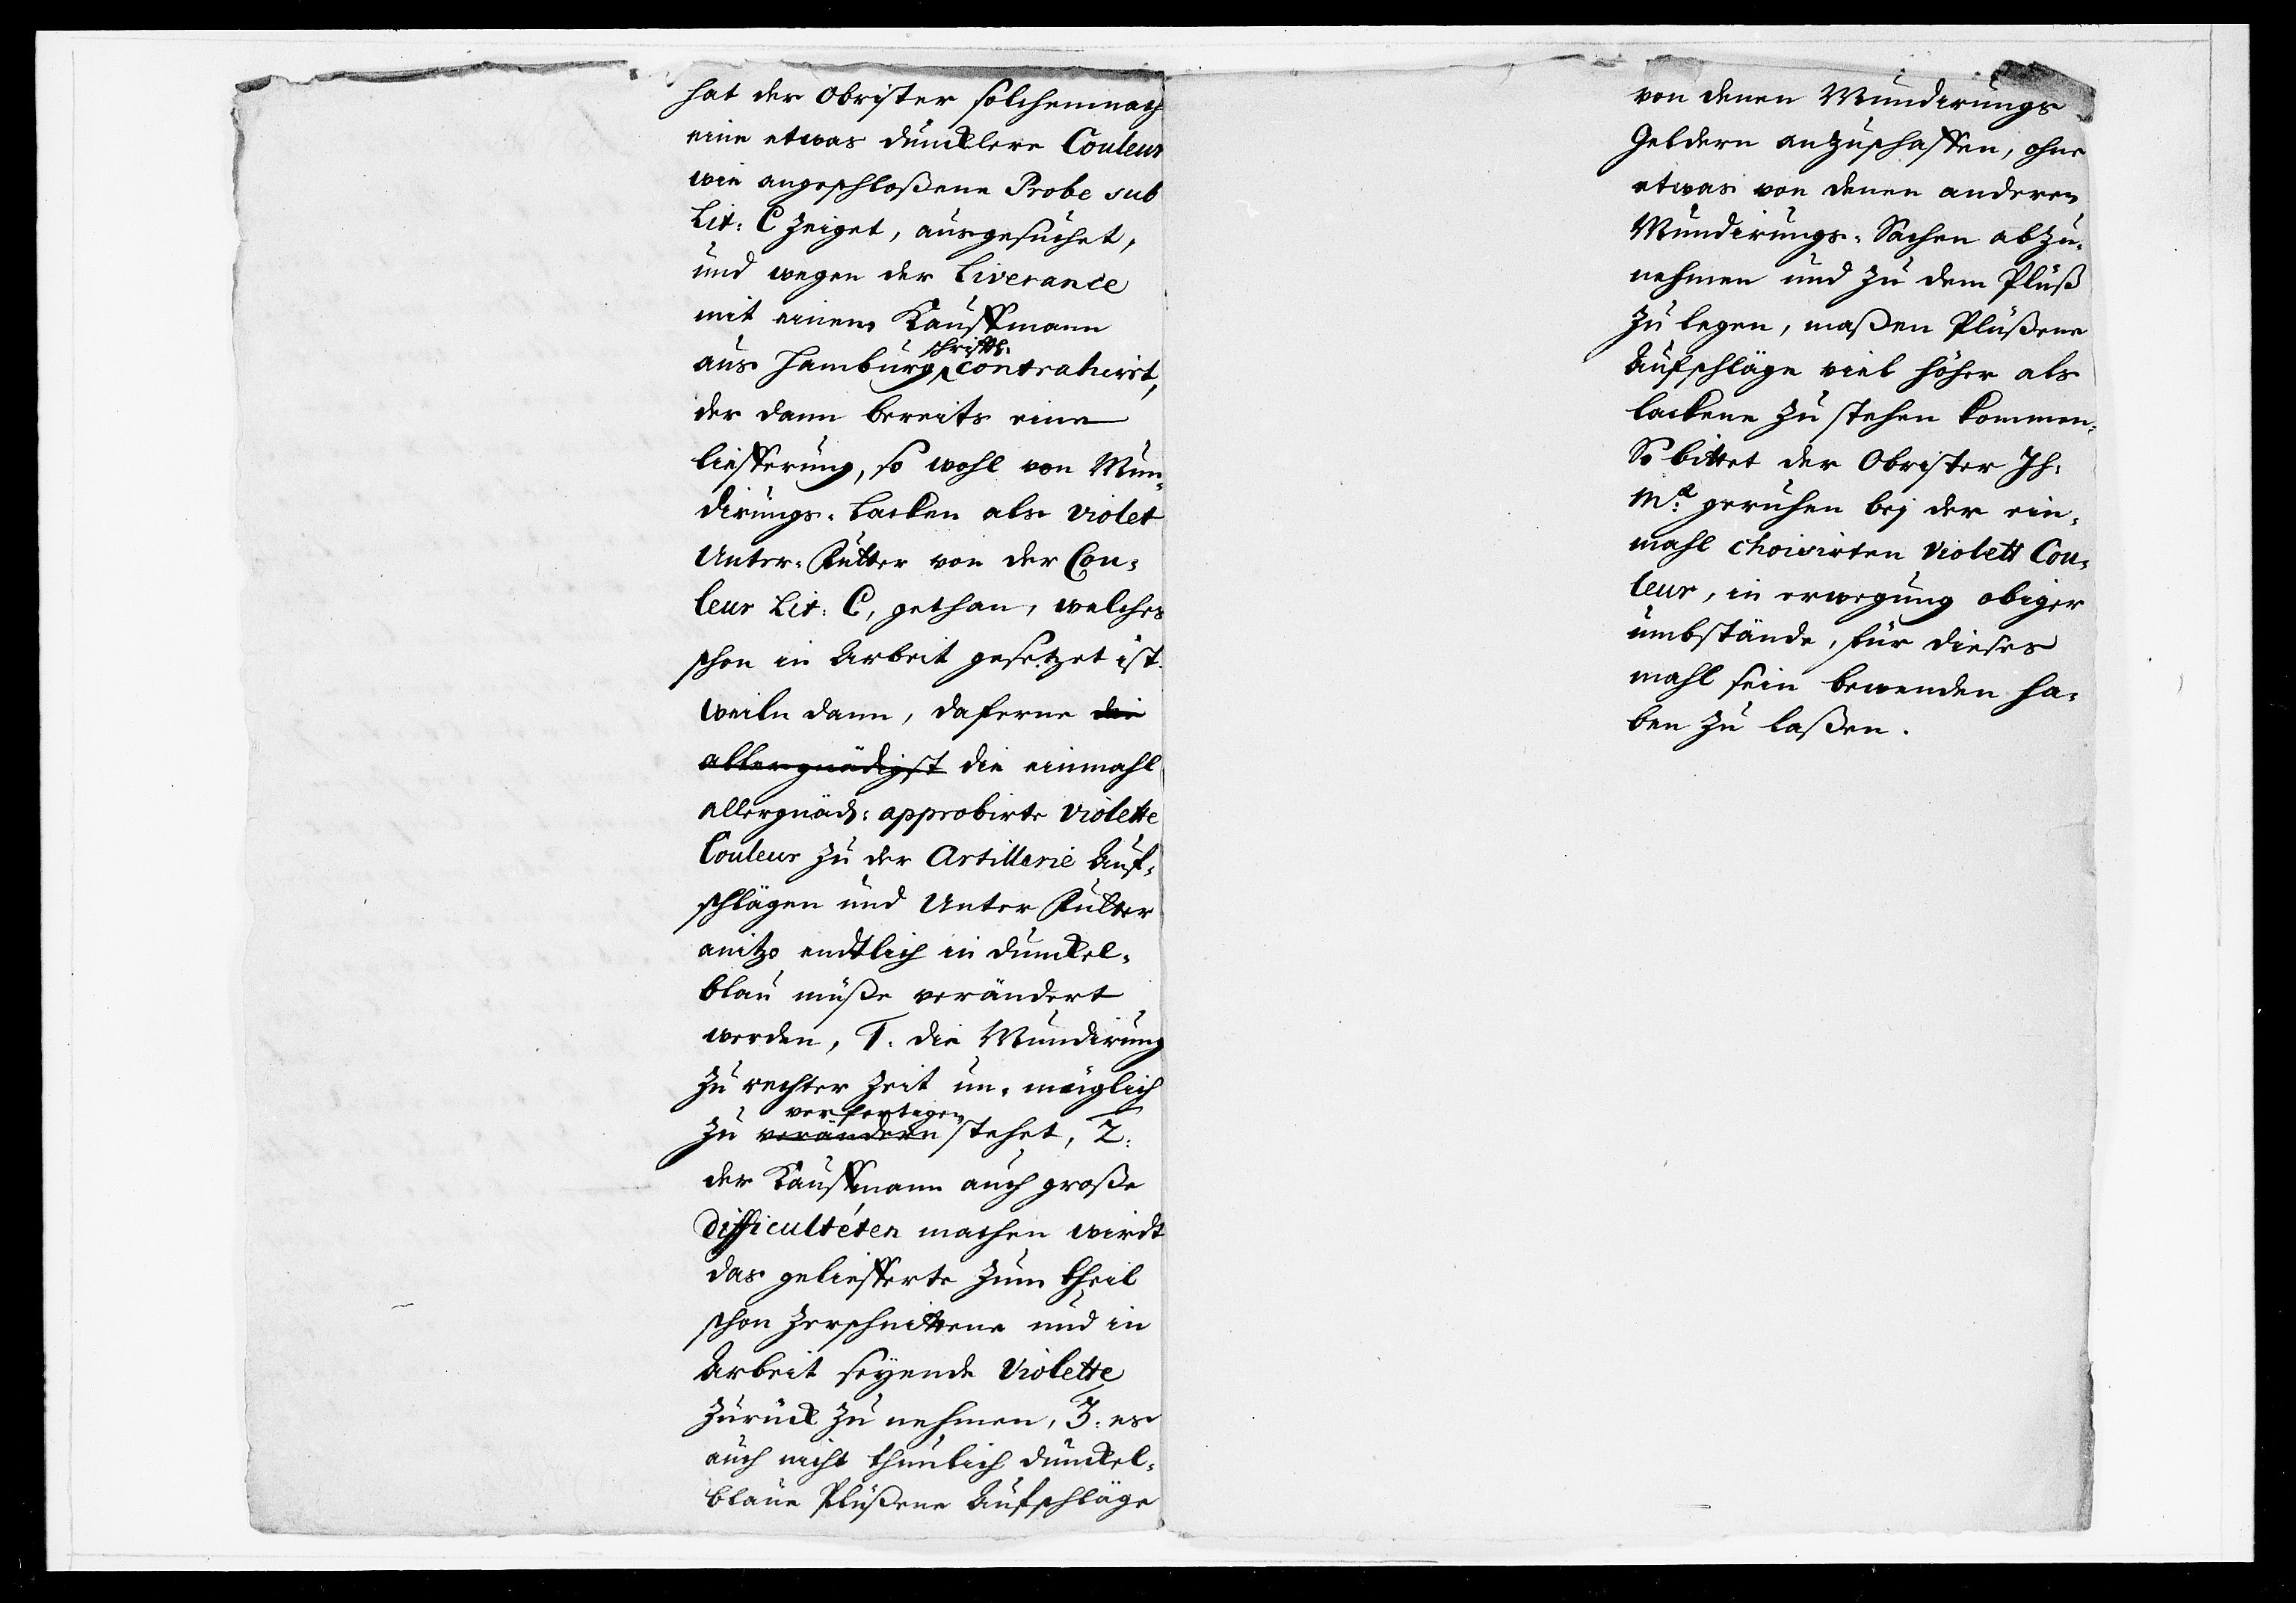 hat der Obrister solchemnach
eine etwas duncklere Couleur
wie angeschloßene Probe sub
Lit: C zeiget, ausgesuchet,
und wegen der Liverance
mit einem Kauffmann
aus Hamburg schrifftl: contrahirt,
der dann bereits eine
liefferung, so wohl von Mun-
dirungs-Lacken als violet
Unter-Futter von der Cou-
leur Lit: C, gethan, welches
schon in Arbeit gesetzet ist.
weiln dann, daferne die
allergnädigst die einmahl
allergnäd: approbirte violette
Couleur zu der Artillerie Auf-
schlägen und Unter Futter
anitzo endtlich in dunckel-
blau müße verändert
werden, 1. die Mundirung
zu rechter Zeit un-müglich
zu verändern verfertigen stehet, 2:
der Kauffmann auch große
difficultéten machen wirdt
das gelieffterte zum theil
schon zerschnittene und in
Arbeit seyende Violette
zurück zu nehmen, 3: es
auch nicht thunlich dunckel-
blaue Plüßene Aufschläge
von denen Mundirungs
Geldern anzuschaffen, ohne
etwas von denen anderen
Mundirungs-Sachen abzu-
nehmen und zu dem Plüß
zu legen, maßen Plüßene
Aufschläge viel höher als
lackene zu stehen kommen.
So bittet der Obrister Ih:
Mt: geruhen bej der ein-
mahl choisirten violett Cou-
leur, in erwegung obiger
umbstände, für dieses
mahl sein bewenden ha-
ben zu laßen.